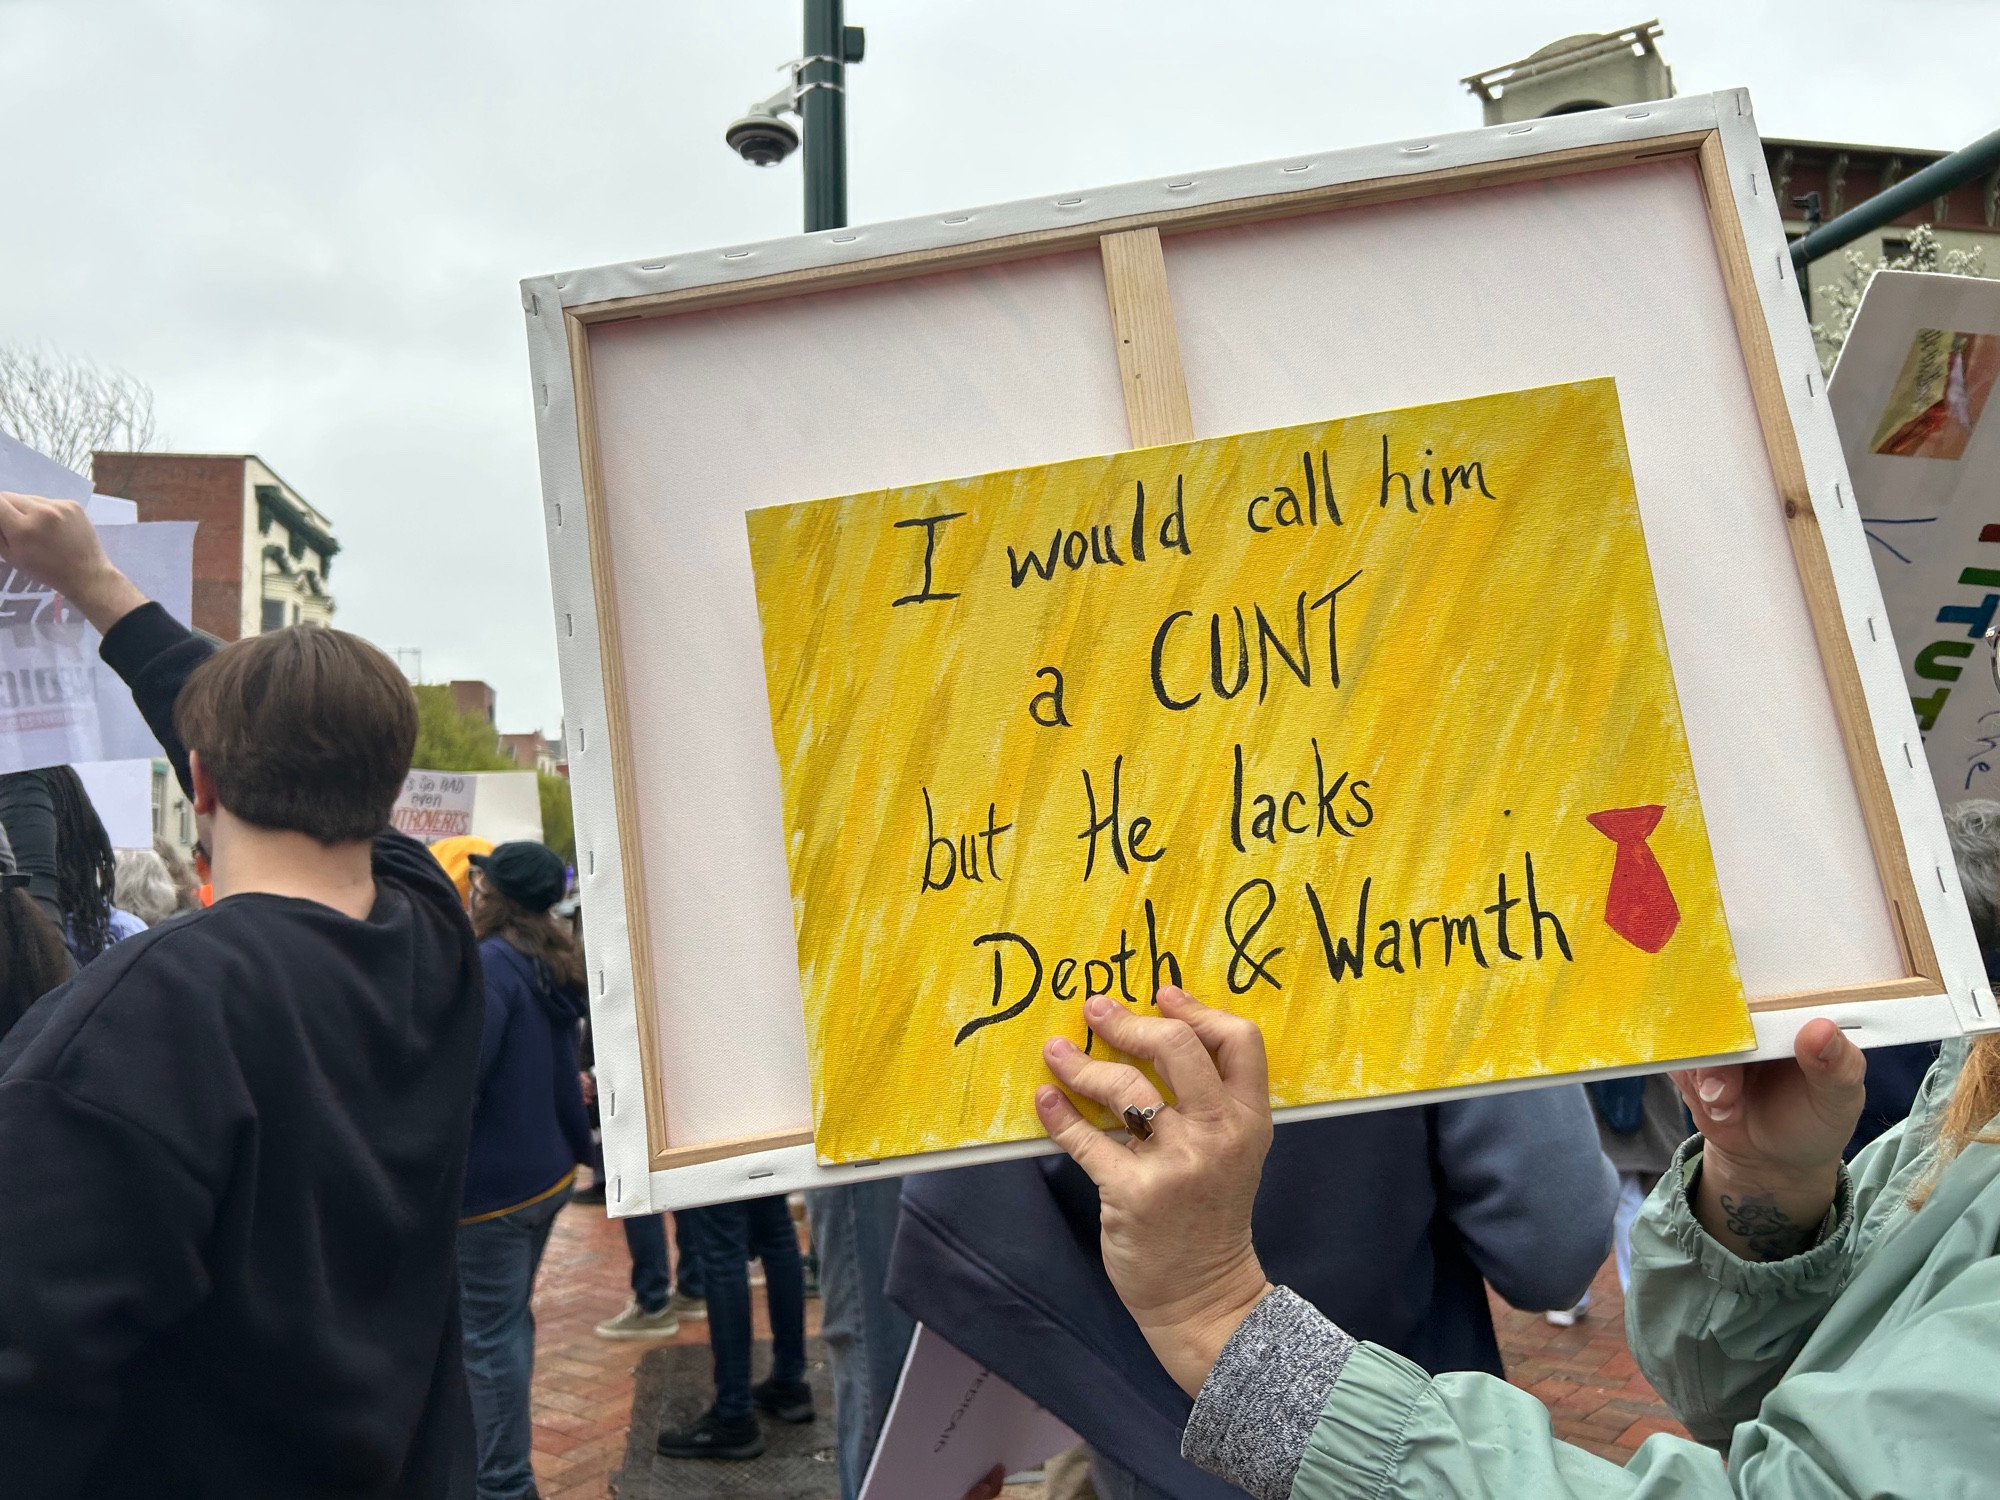 I would call him
a CUNT
but He lacks
Depth & Warmth
SO BAD
even
the
MEDICAID